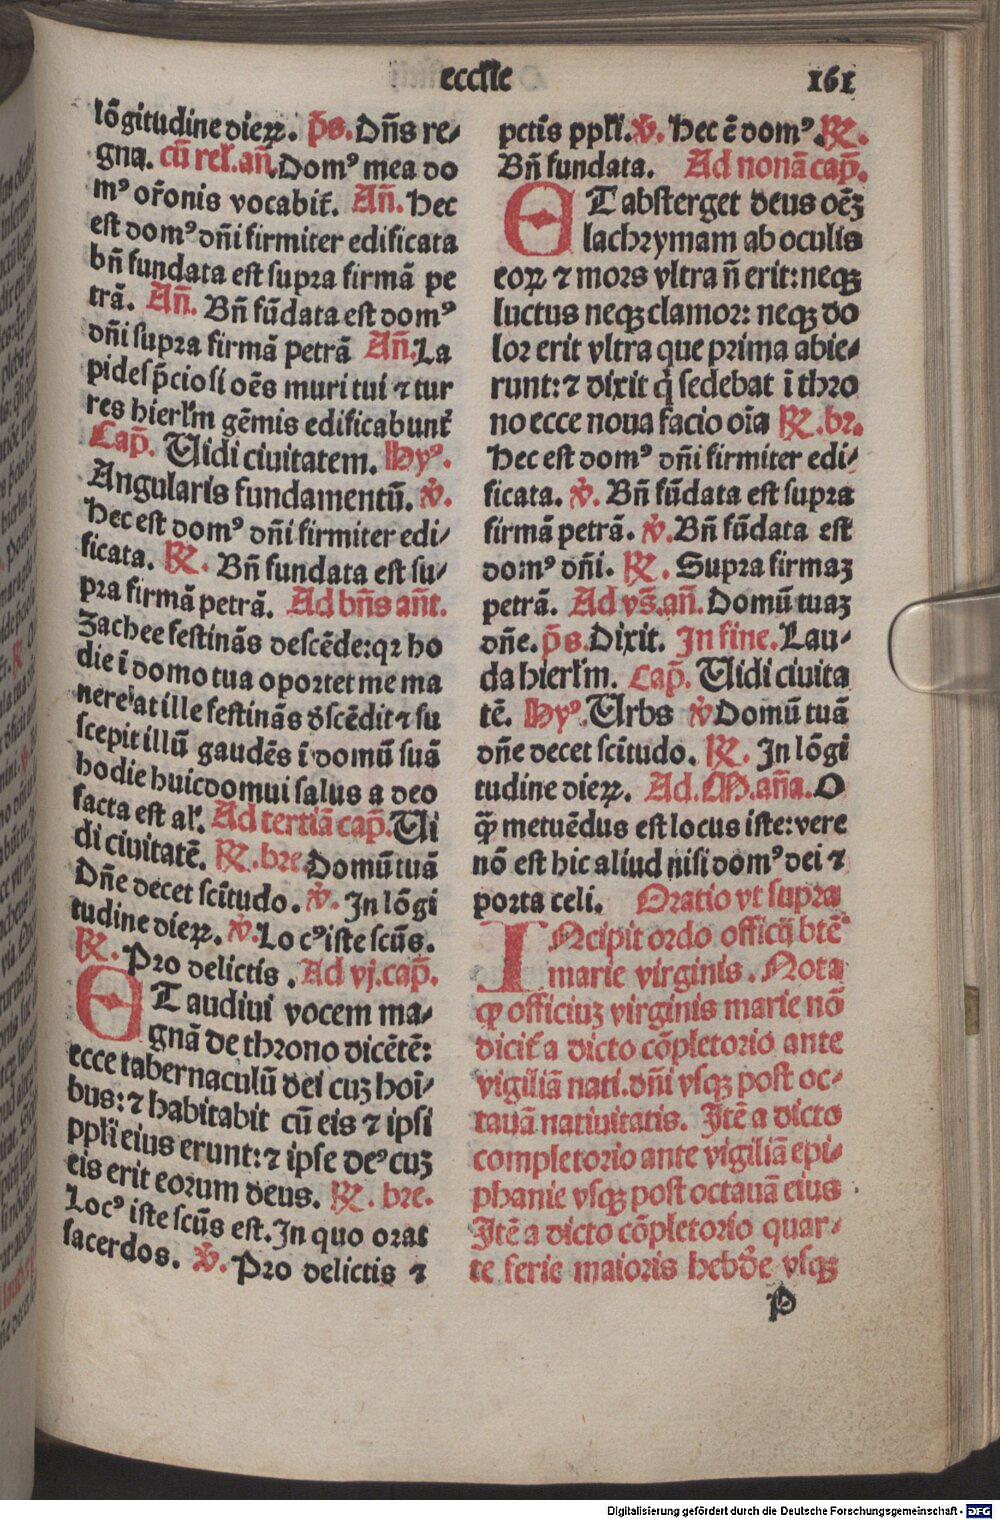 eccłie
161
lõgitudine dieꝝ. p̃s. Dñs re/
gna. cũ rel̃. añ. Domꝰ mea do
mꝰ or̃onis vocabit̃. Añ. Hec
est domꝰ dñi firmiter edificata
bñ fundata est supra firmã pe
trã. Añ. Bñ fũdata est domꝰ
dñi supra firmã petrã Añ. La
pides p̃ciosi oẽs muri tui ⁊ tur
res hierl̃m gẽmis edificabunt̃
Cap̃. Vidi ciuitatem. Hyꝰ.
Angularis fundamentũ. ꝟ.
Hec est domꝰ dñi firmiter edi/
ficata. ℞. Bñ fundata est su/
pra firmã petrã. Ad bñs añt.
Zachee festinãs descẽde: qꝛ ho
die ĩ domo tua oportet me ma
nere at ille festinãs d̃scẽdit ⁊ su
scepit illũ gaudẽs ĩ domũ suã
hodie huic domui salus a deo
facta est al̃. Ad tertiã cap̃. Vi
di ciuitatẽ. ℞. bre Domũ tuã
Dñe decet scĩtudo. ꝟ. In lõgi
tudine dieꝝ. ꝟ. Locꝰ iste scũs.
℞. Pro delictis. Ad vj. cap̃.
ET audiui vocem ma/
gnã de throno dicẽtẽ:
ecce tabernaculũ dei cuꝫ hoĩ/
bus: ⁊ habitabit cũ eis ⁊ ipsi
ppl̃i eius erunt: ⁊ ipse deꝰ cuꝫ
eis erit eorum deus. ℞. bre.
Locꝰ iste scũs est. In quo orat
sacerdos. ꝟ. Pro delictis ⁊
pctis ppl̃i. ꝟ. Hec ẽ domꝰ. ℞.
Bñ fundata. Ad nonã cap̃.
ET absterget deus oẽꝫ
lachrymam ab oculis
eoꝝ ⁊ mors vltra ñ erit: neqꝫ
luctus neqꝫ clamor: neqꝫ do
lor erit vltra que prima abie/
runt: ⁊ dixit q̃ sedebat ĩ thro
no ecce noua facio oĩa ℞. br.
Hec est domꝰ dñi firmiter edi/
ficata. ꝟ. Bñ fũdata est supra
firmã petrã. ꝟ. Bñ fũdata est
domꝰ dñi. ℞. Supra firmaꝫ
petrã. Ad vs̃. añ. Domũ tuaꝫ
dñe. p̃s. Dixit. In fine. Lau/
da hierl̃m. Cap̃. Vidi ciuita
tẽ. Hyꝰ. Vrbs ꝟ Domũ tuã
dñe decet scĩtudo. ℞. In lõgi
tudine dieꝝ. Ad. M. aña. O
q̃ metuẽdus est locus iste: vere
nõ est hic aliud nisi domꝰ dei ⁊
porta celi. Oratio vt supra
INcipit ordo officij btẽ
marie virginis. Nota
ꝙ officiuꝫ virginis marie nõ
dicit̃ a dicto cõpletorio ante
vigiliã nati. dñi vsqꝫ post oc/
tauã natiuitatis. Itẽ a dicto
completorio ante vigiliã epi/
phanie vsqꝫ post octauã eius
Itẽ a dicto cõpletorio quar/
te ferie maioris hebd̃e vsqꝫ
P
Digitalisierung gefördert durch die Deutsche Forschungsgemeinschaft - DFG